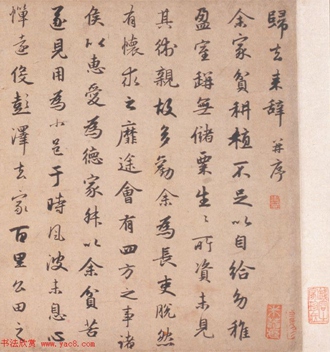 歸去来辭 并序
余家貧耕植不足以自給幼稚
盈室缾無儲粟生々所資未見
其術親故多勸余為長吏脫然
有懷求之靡途會有四方之事諸
侯以惠愛為德家叔以余貧苦
遂見用為小邑于時風波未息心
憚遠役彭澤去家百里公田之
书法欣赏
www.yac8.com